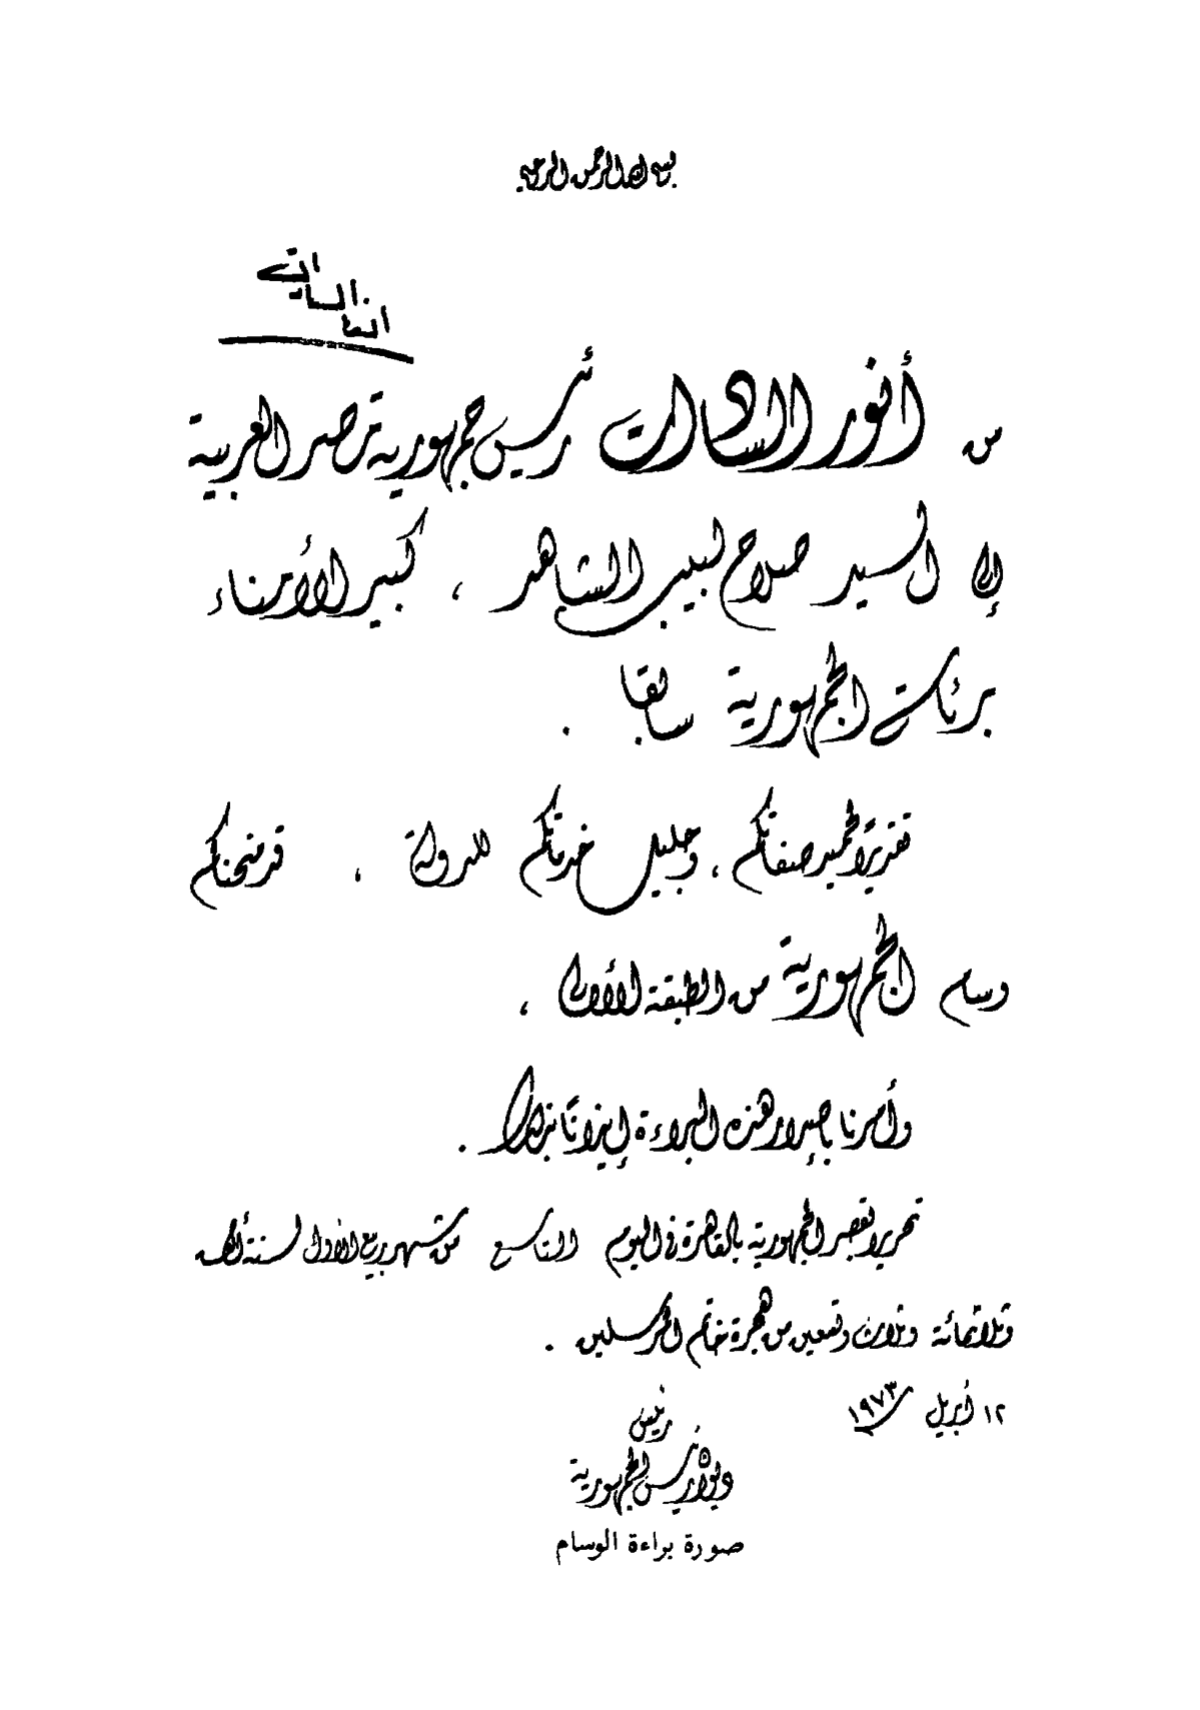 بسم الله الرحمن الرحيم
أنور السادات
من أنور السادات رئيس جمهورية مصر العربية
إلى السيد صلاح لبيب الشاهد ، كبير الأمناء
برئاسة الجمهورية سابقا .
تقديرًا لحميد صفاتكم ، وجليل خدماتكم للدولة ، قد منحناكم
وسام الجمهورية من الطبقة الأولى ،
وأمرنا بإصدار هذه البراءة إيذانًا بذلك .
تحريرا بقصر الجمهورية بالقاهرة في اليوم التاسع من شهر ربيع الأول لسنة ألف
وثلاثمائة وثلاث وتسعين من هجرة خاتم المرسلين .
١٢ أبريل ١٩٧٣
رئيس
ديوان رئيس الجمهورية
صورة براءة الوسام